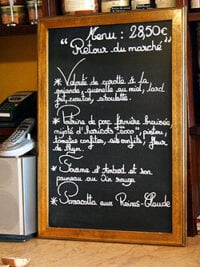 Menu : 28,50€
"Retour du marché"
* Velouté de carotte à la
quenelle au miel, lard
* Poitrine de porc fermière braisée,
mijoté d'haricots "coco",
tomates confites, ail confit, fleur
de thym.
* et son
pruneau au vin rouge
* Panacotta aux Reines-Claude